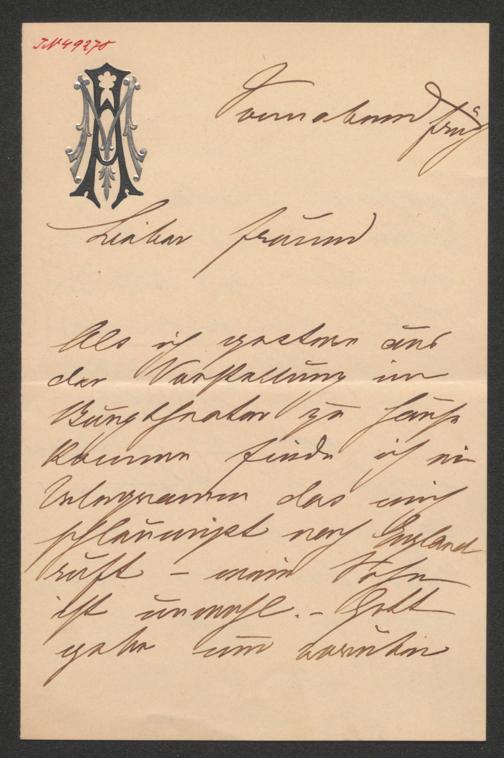 J.N. 49278
Sonnabend früh
Lieber Freund
Als ich gestern aus
der Vorstellung im
Burgtheater zu Hause
komme finde ich ein
Telegramm das mich
schleunigst nach England
ruft – mein Sohn
ist unwohl. – Gott
gebe nur